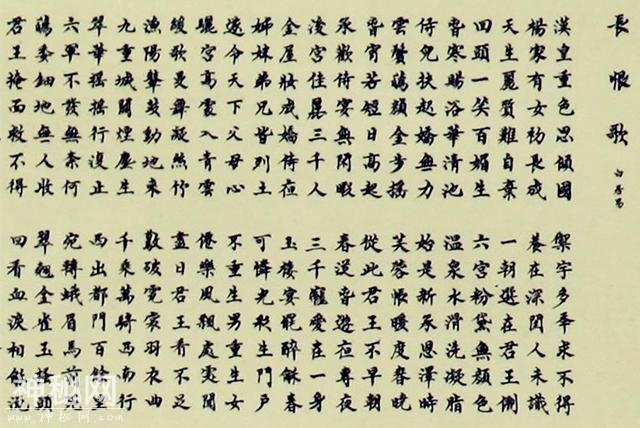 長恨歌
白居易
漢皇重色思傾國
御宇多年求不得
楊家有女初長成
養在深閨人未識
天生麗質難自棄
一朝選在君王側
回頭一笑百媚生
六宮粉黛無顏色
春寒賜浴華清池
溫泉水滑洗凝脂
侍兒扶起嬌無力
始是新承恩澤時
雲鬢花顏金步搖
芙蓉帳暖度春宵
春宵苦短日高起
從此君王不早朝
承歡侍宴無閒暇
春從春遊夜專夜
後宮佳麗三千人
三千寵愛在一身
金屋妝成嬌侍夜
玉樓宴罷醉和春
姊妹弟兄皆列土
可憐光彩生門戶
遂令天下父母心
不重生男重生女
驪宮高處入青雲
仙樂風飄處處聞
緩歌慢舞凝絲竹
盡日君王看不足
漁陽鼙鼓動地來
驚破霓裳羽衣曲
九重城闕煙塵生
千乘萬騎西南行
翠華搖搖行復止
西出都門百餘里
六軍不發無奈何
宛轉蛾眉馬前死
花鈿委地無人收
翠翹金雀玉搔頭
君王掩面救不得
回看血淚相和流
神秘网